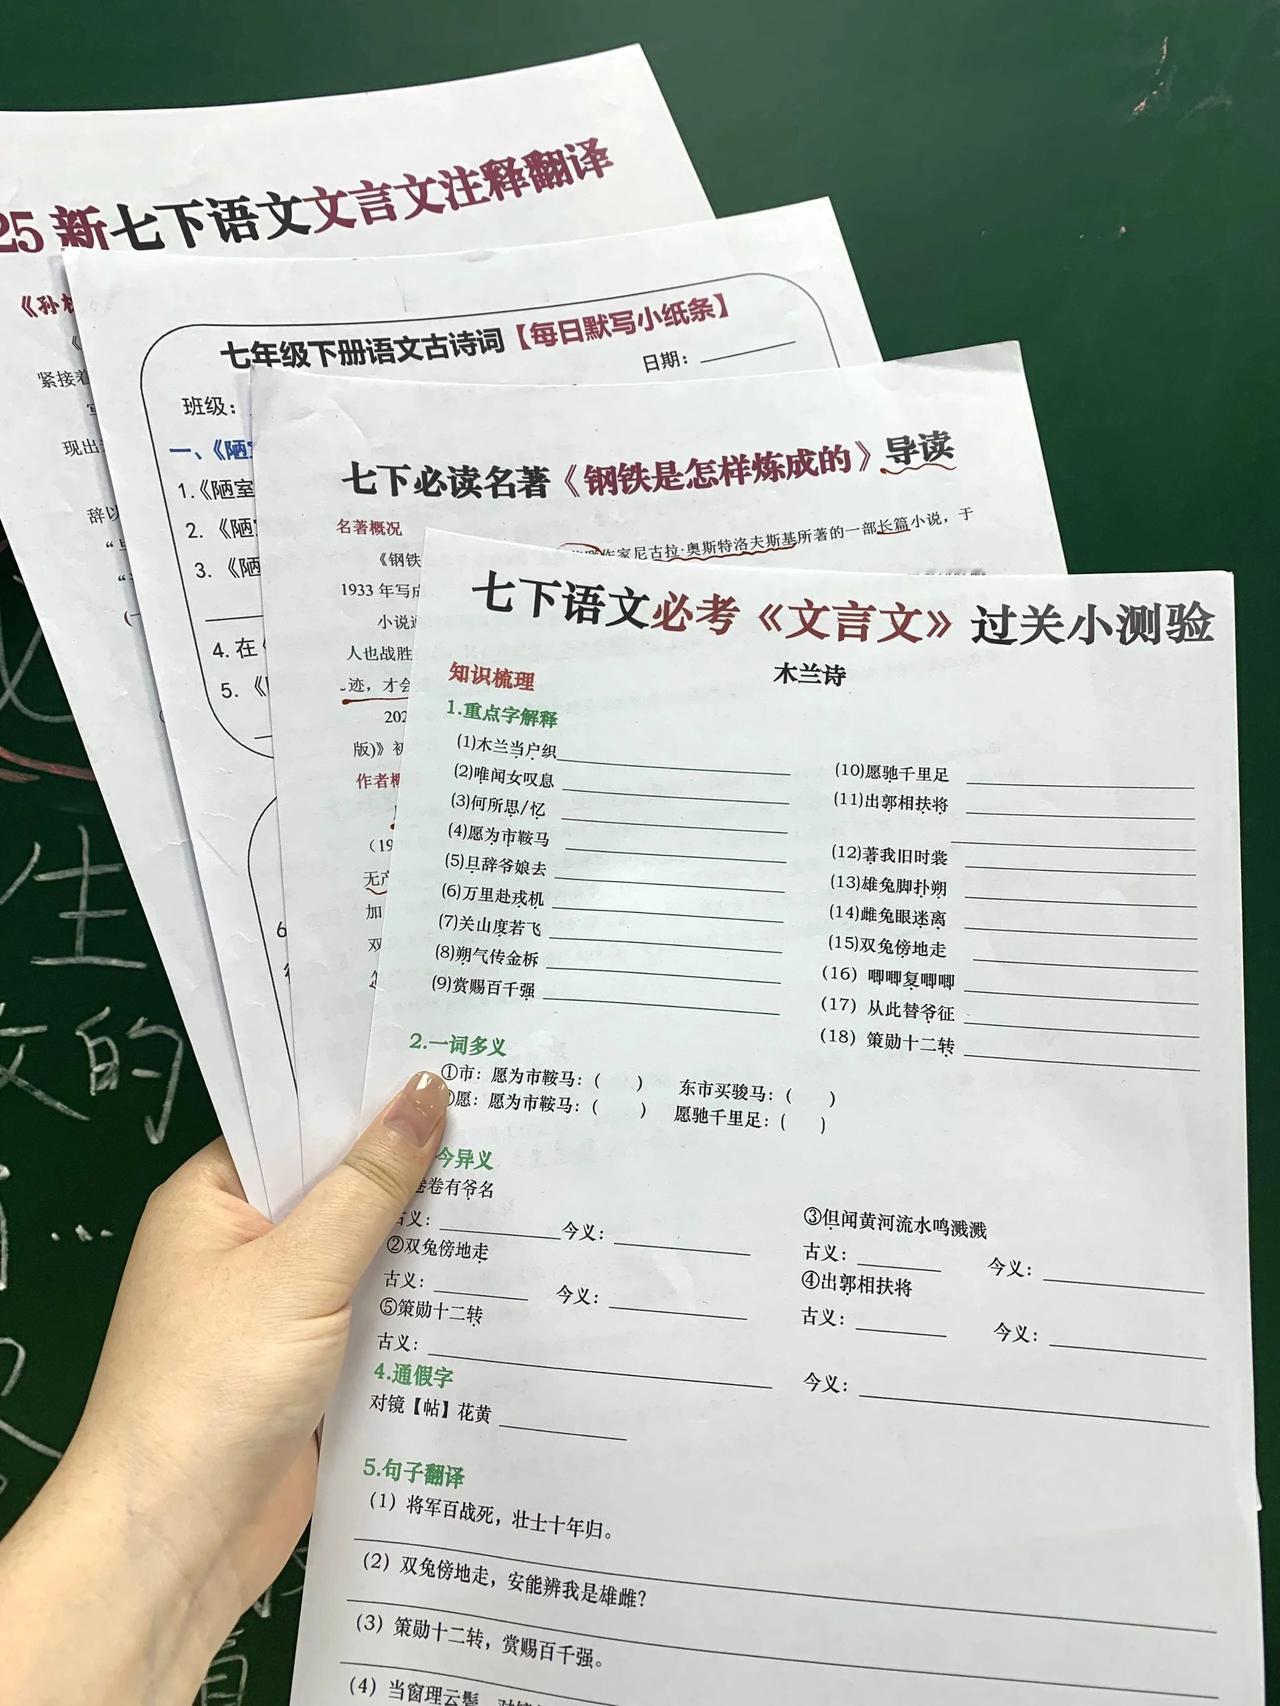 25新七下语文文言文注释翻译
《孙
紧接着
现出
辞以
七年级下册语文古诗词【每日默写小纸条】
日期：
班级：
一、《陋室
1.《陋室
2. 《陋
3. 《陋
4. 在
5. 《
6
七下必读名著《钢铁是怎样炼成的》导读
名著概况
《钢铁
作家尼古拉·奥斯特洛夫斯基所著的一部长篇小说，于
1933 年写成
小说通
人也战胜
迹，才会
202
版)》初
作者概
（19
无产
加
双
七下语文必考《文言文》过关小测验
木兰诗
知识梳理
1.重点字解释
(1)木兰当户织
(2)唯闻女叹息
(3)何所思/忆
(4)愿为市鞍马
(5)旦辞爷娘去
(6)万里赴戎机
(7)关山度若飞
(8)朔气传金柝
(9)赏赐百千强
(10)愿驰千里足
(11)出郭相扶将
(12)著我旧时裳
(13)雄兔脚扑朔
(14)雌兔眼迷离
(15)双兔傍地走
(16) 唧唧复唧唧
(17) 从此替爷征
(18) 策勋十二转
2.一词多义
①市：愿为市鞍马：( ) 东市买骏马：( )
愿：愿为市鞍马：( ) 愿驰千里足：( )
今异义
卷卷有爷名
古义： 今义：
②双兔傍地走
古义： 今义：
③但闻黄河流水鸣溅溅
古义： 今义：
④出郭相扶将
古义： 今义：
⑤策勋十二转
古义： 今义：
4.通假字
对镜【帖】花黄
5.句子翻译
(1) 将军百战死，壮士十年归。
(2) 双兔傍地走，安能辨我是雄雌？
(3) 策勋十二转，赏赐百千强。
(4) 当窗理云鬓，对镜
生
的